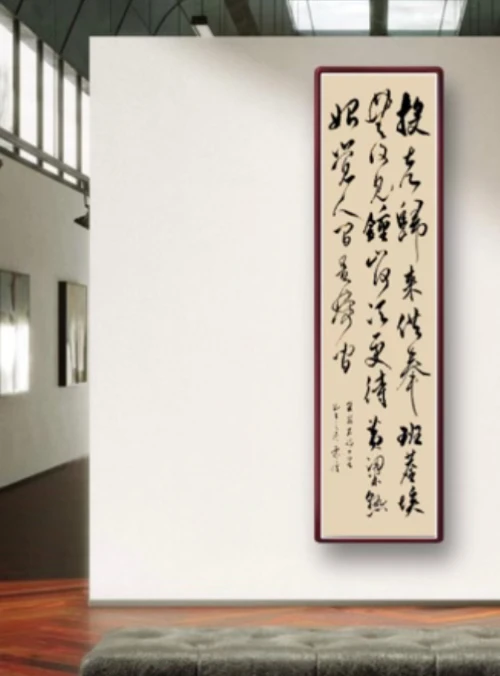 投老歸來供奉班塵埃
無復見鍾山何須更待黃粱熟
始覺人間是夢間